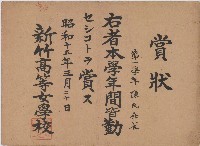 賞狀
第一學年
右者本學年間皆勤
セシコトヲ賞ス
昭和十五年三月二十日
新竹高等女學校